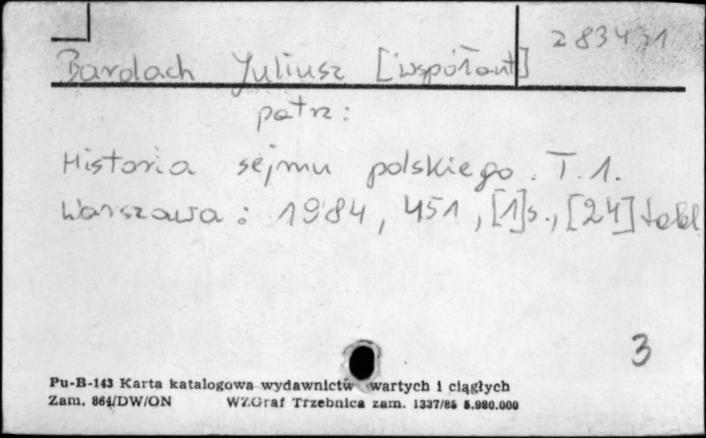 283431
Bardach Juliusz [współaut]
patrz:
Historia sejmu polskiego. T. 1.
Warszawa : 1984, 451, [1]s., [24] tabl
3
Pu-B-143 Karta katalogowa wydawnictw wartych i ciągłych
Zam. 864/DW/ON WZ.Graf Trzebnica zam. 1337/85 5.980.000